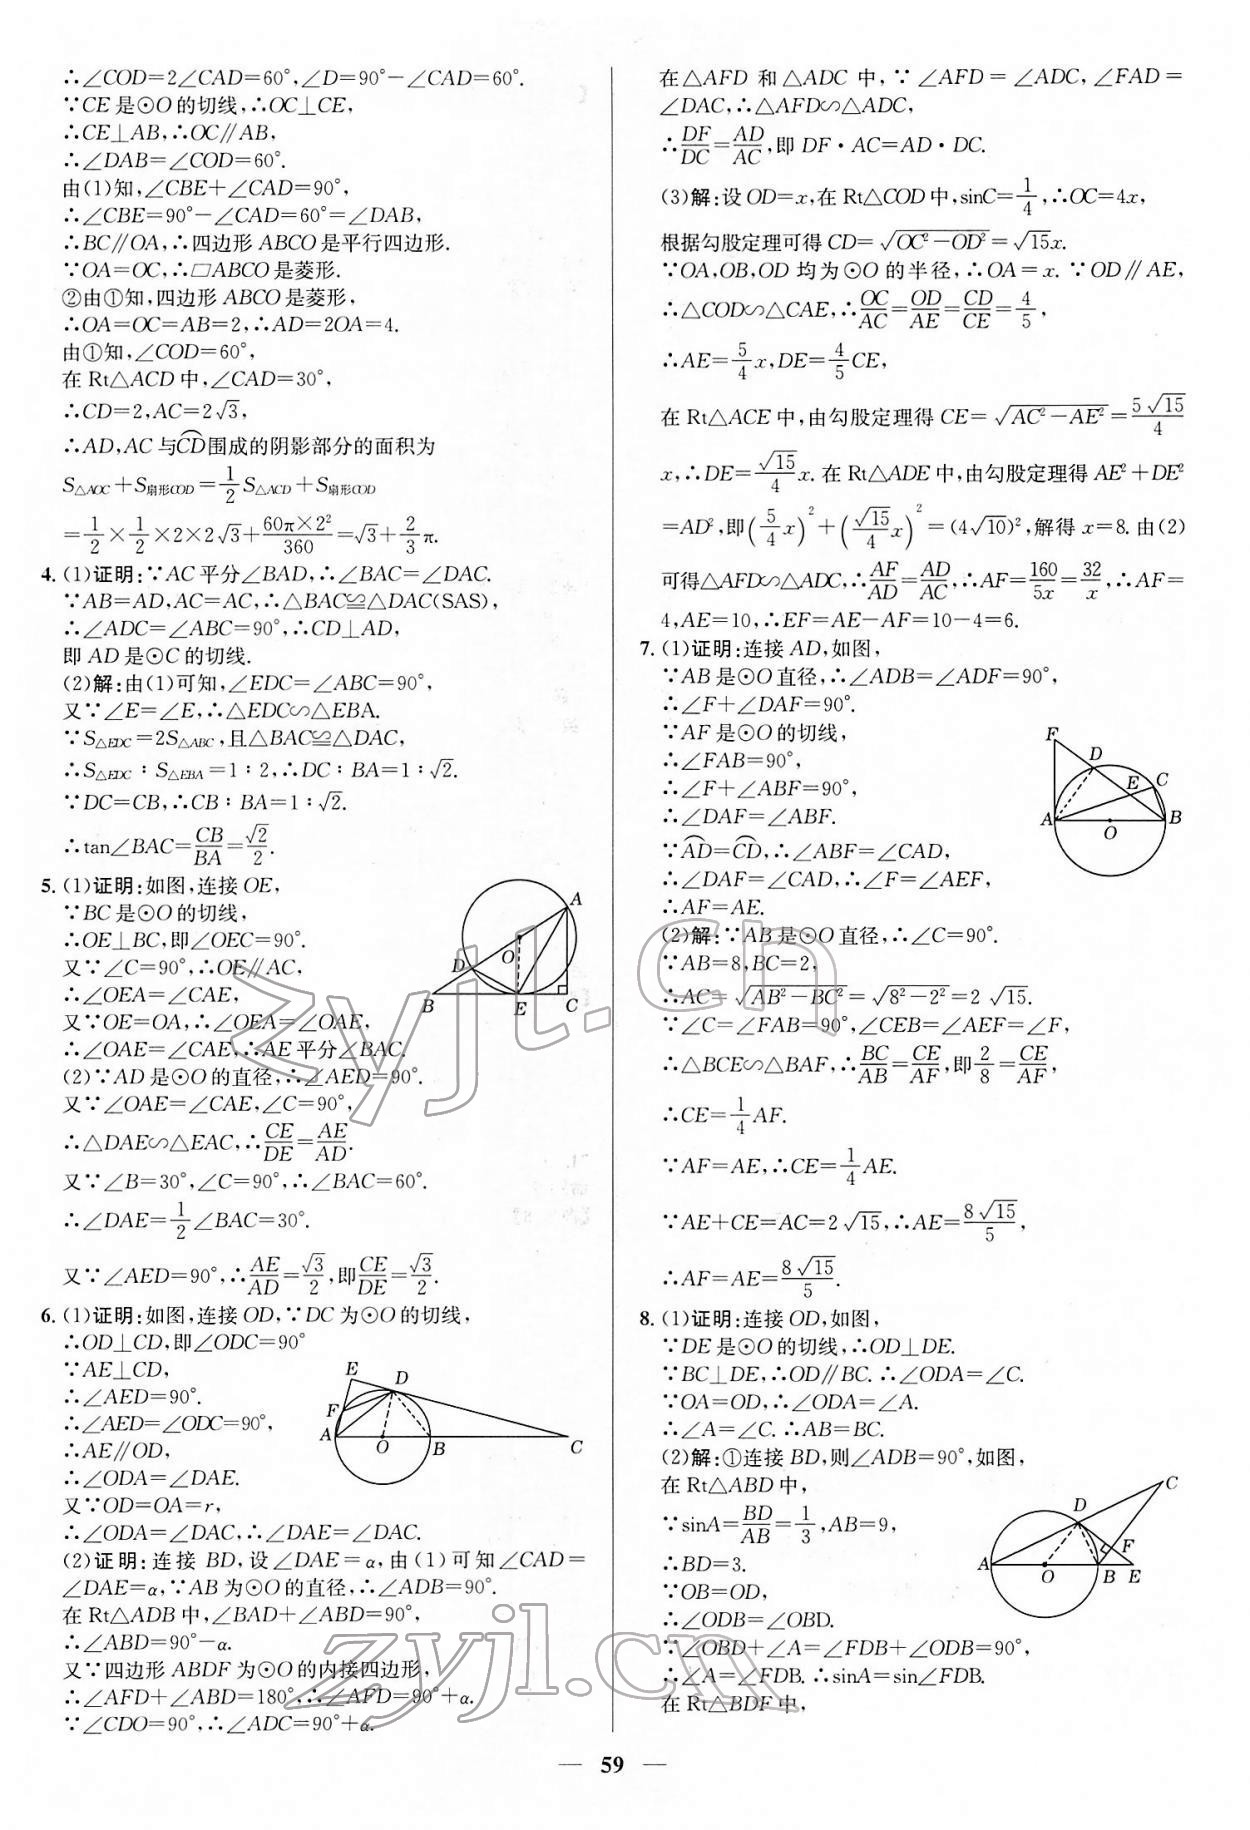 ∴∠COD=2∠CAD=60°,∠D=90°-∠CAD=60°.
∵CE是⊙O的切线,∴OC⊥CE,
∴CE⊥AB,∴OC∥AB,
∴∠DAB=∠COD=60°.
由(1)知,∠CBE+∠CAD=90°,
∴∠CBE=90°-∠CAD=60°=∠DAB,
∴BC∥OA,∴四边形ABCO是平行四边形.
∵OA=OC,∴□ABCO是菱形.
②由①知,四边形ABCO是菱形,
∴OA=OC=AB=2,∴AD=2OA=4.
由①知,∠COD=60°,
在Rt△ACD中,∠CAD=30°,
∴CD=2,AC=2√3,
∴AD,AC与⌒CD围成的阴影部分的面积为
S△AOC+S扇形COD=1/2 S△ACD+S扇形COD
=1/2×1/2×2×2√3+60π×2²/360=√3+2/3π.
4. (1)证明:∵AC平分∠BAD,∴∠BAC=∠DAC.
∵AB=AD,AC=AC,∴△BAC≌△DAC(SAS),
∴∠ADC=∠ABC=90°,∴CD⊥AD,
即AD是⊙C的切线.
(2)解:由(1)可知,∠EDC=∠ABC=90°,
又∵∠E=∠E,∴△EDC∽△EBA.
∵S△EDC=2S△ABC,且△BAC≌△DAC,
∴S△EDC:S△EBA=1:2,∴DC:BA=1:√2.
∵DC=CB,∴CB:BA=1:√2.
∴tan∠BAC=CB/BA=√2/2.
5. (1)证明:如图,连接OE,
∵BC是⊙O的切线,
∴OE⊥BC,即∠OEC=90°.
又∵∠C=90°,∴OE∥AC,
∴∠OEA=∠CAE,
又∵OE=OA,∴∠OEA=∠OAE,
∴∠OAE=∠CAE,∴AE平分∠BAC.
(2)∵AD是⊙O的直径,∴∠AED=90°.
又∵∠OAE=∠CAE,∠C=90°,
∴△DAE∽△EAC,∴CE/DE=AE/AD.
又∵∠B=30°,∠C=90°,∴∠BAC=60°.
∴∠DAE=1/2∠BAC=30°.
又∵∠AED=90°,∴AE/AD=√3/2,即CE/DE=√3/2.
A
O
D
B
E
C
6. (1)证明:如图,连接OD,∵DC为⊙O的切线,
∴OD⊥CD,即∠ODC=90°
∵AE⊥CD,
∴∠AED=90°.
∴∠AED=∠ODC=90°,
∴AE∥OD,
∴∠ODA=∠DAE.
又∵OD=OA=r,
∴∠ODA=∠DAC,∴∠DAE=∠DAC.
E
D
F
A
O
B
C
(2)证明:连接BD,设∠DAE=α,由(1)可知∠CAD=
∠DAE=α,∵AB为⊙O的直径,∴∠ADB=90°.
在Rt△ADB中,∠BAD+∠ABD=90°,
∴∠ABD=90°-α.
又∵四边形ABDF为⊙O的内接四边形,
∴∠AFD+∠ABD=180°,∴∠AFD=90°+α.
∵∠CDO=90°,∴∠ADC=90°+α.
在△AFD和△ADC中,∵∠AFD=∠ADC,∠FAD=
∠DAC,∴△AFD∽△ADC,
∴DF/DC=AD/AC,即DF·AC=AD·DC.
(3)解:设OD=x,在Rt△COD中,sinC=1/4,∴OC=4x,
根据勾股定理可得CD=√(OC²-OD²)=√15x.
∵OA,OB,OD均为⊙O的半径,∴OA=x.∵OD∥AE,
∴△COD∽△CAE,∴OC/AC=OD/AE=CD/CE=4/5,
∴AE=5/4x,DE=4/5CE,
在Rt△ACE中,由勾股定理得CE=√(AC²-AE²)=5√15/4
x,∴DE=√15/4x.在Rt△ADE中,由勾股定理得AE²+DE²
=AD²,即(5/4x)²+(√15/4x)²=(4√10)²,解得x=8.由(2)
可得△AFD∽△ADC,∴AF/AD=AD/AC,∴AF=160/5x=32/x,∴AF=
4,AE=10,∴EF=AE-AF=10-4=6.
7. (1)证明:连接AD,如图,
∵AB是⊙O直径,∴∠ADB=∠ADF=90°,
∴∠F+∠DAF=90°.
∵AF是⊙O的切线,
∴∠FAB=90°,
∴∠F+∠ABF=90°,
∴∠DAF=∠ABF.
∵⌒AD=⌒CD,∴∠ABF=∠CAD,
∴∠DAF=∠CAD,∴∠F=∠AEF,
∴AF=AE.
F
D
E
C
A
O
B
(2)解:∵AB是⊙O直径,∴∠C=90°.
∵AB=8,BC=2,
∴AC=√(AB²-BC²)=√(8²-2²)=2√15.
∵∠C=∠FAB=90°,∠CEB=∠AEF=∠F,
∴△BCE∽△BAF,∴BC/AB=CE/AF,即2/8=CE/AF,
∴CE=1/4AF.
∵AF=AE,∴CE=1/4AE.
∵AE+CE=AC=2√15,∴AE=8√15/5,
∴AF=AE=8√15/5.
8. (1)证明:连接OD,如图,
∵DE是⊙O的切线,∴OD⊥DE.
∵BC⊥DE,∴OD∥BC.∴∠ODA=∠C.
∵OA=OD,∴∠ODA=∠A.
∴∠A=∠C.∴AB=BC.
(2)解:①连接BD,则∠ADB=90°,如图,
在Rt△ABD中,
∵sinA=BD/AB=1/3,AB=9,
∴BD=3.
∵OB=OD,
∴∠ODB=∠OBD.
∵∠OBD+∠A=∠FDB+∠ODB=90°,
∴∠A=∠FDB.∴sinA=sin∠FDB.
在Rt△BDF中,
C
D
F
A
O
B
E
zyjl.cn
zyjl.cn
— 59 —